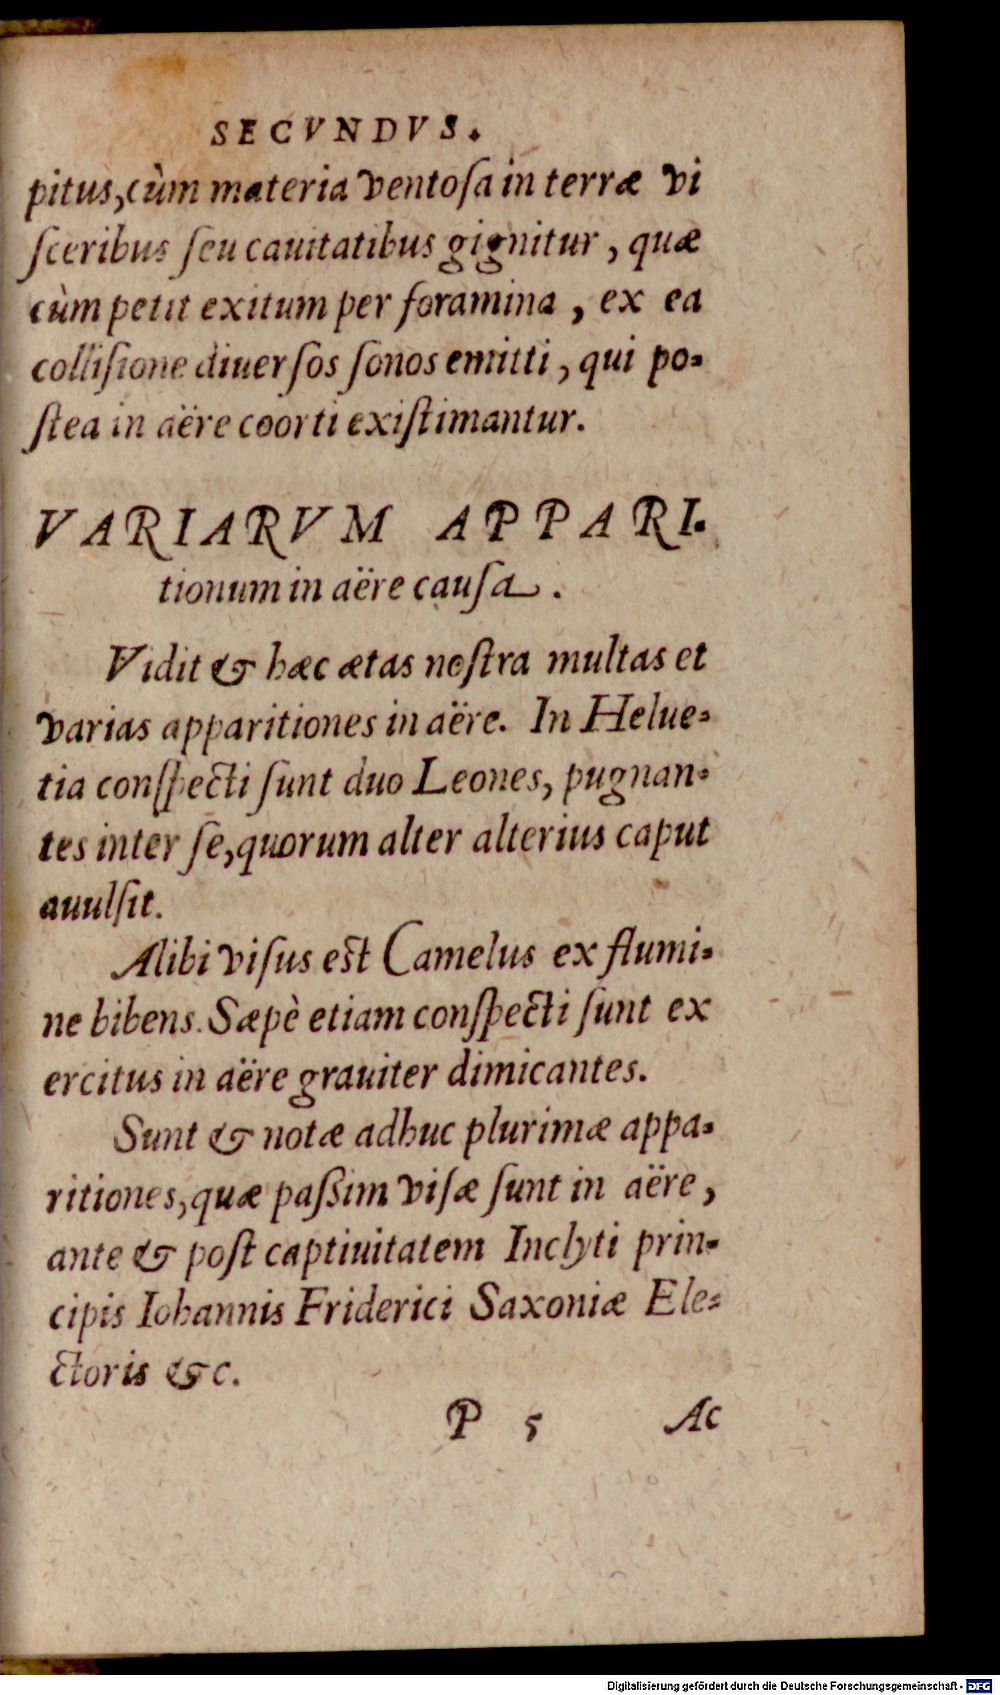 SECVNDVS.
pitus,cùm materia ventoſa in terræ vi
ſceribus ſeu cauitatibus gignitur, quæ
cùm petit exitum per foramina, ex ea
colliſione diuerſos ſonos emitti, qui po-
ſtea in aëre coorti exiſtimantur.
VARIARVM APPARI-
tionum in aëre cauſa.
Vidit & hæc ætas noſtra multas et
varias apparitiones in aëre. In Helue-
tia conſpecti ſunt duo Leones, pugnan-
tes inter ſe,quorum alter alterius caput
auulſit.
Alibi viſus est Camelus ex flumi-
ne bibens. Sæpè etiam conſpecti ſunt ex
ercitus in aëre grauiter dimicantes.
Sunt & notæ adhuc plurimæ appa-
ritiones,quæ paßim viſæ ſunt in aëre,
ante & poſt captiuitatem Inclyti prin-
cipis Iohannis Friderici Saxoniæ Ele-
ctoris &c.
P 5 Ac
Digitalisierung gefördert durch die Deutsche Forschungsgemeinschaft - DFG